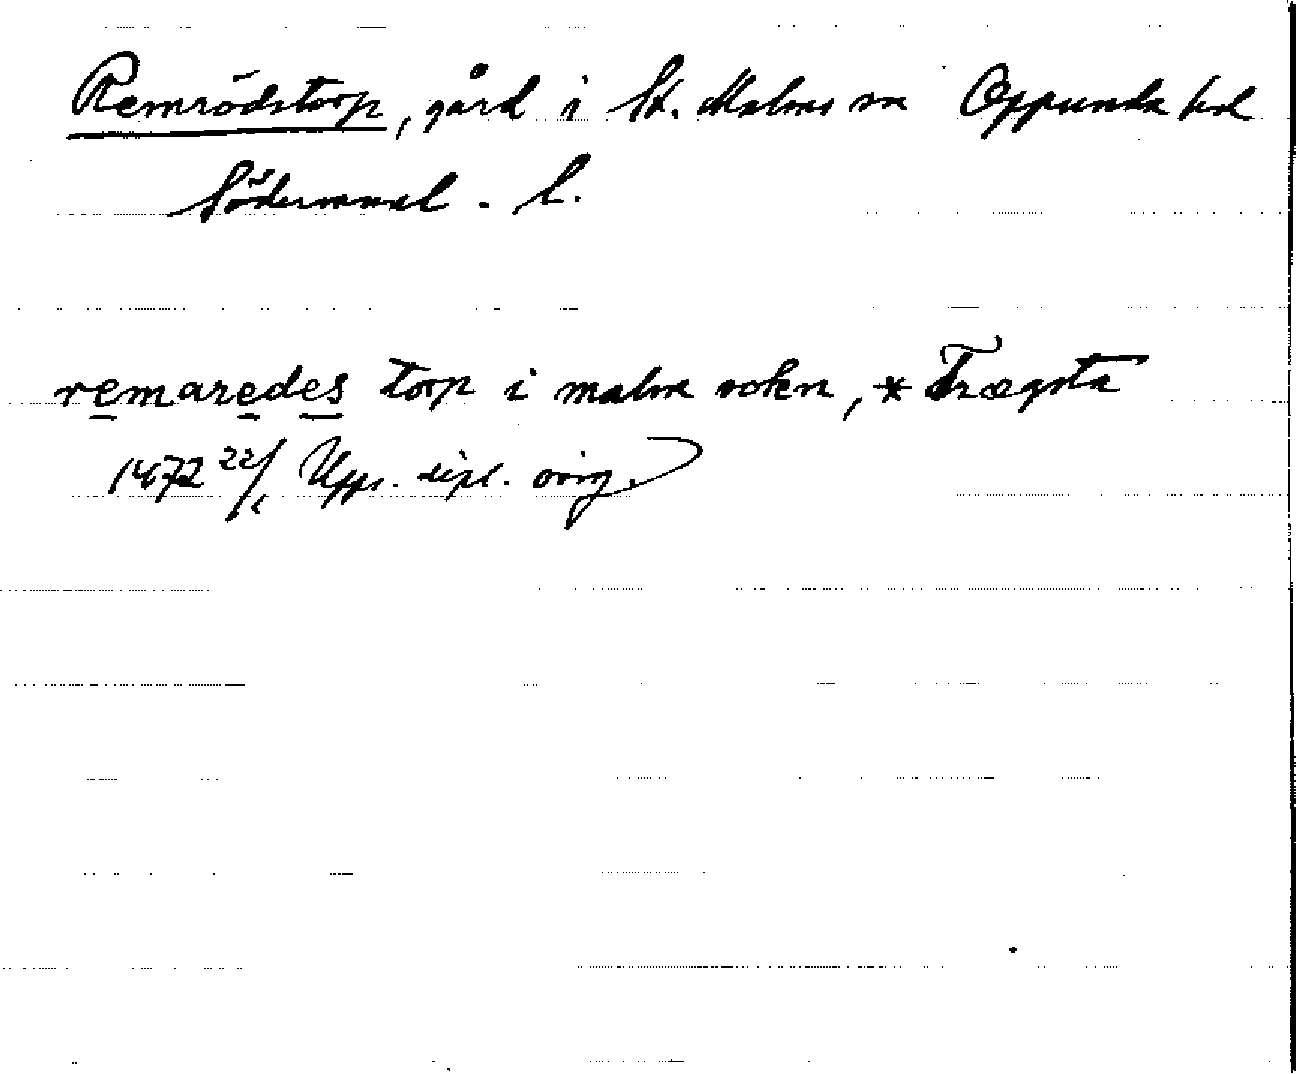 Remrödstorp, gård i St. Malms sn Oppunda hd
Södermanl. l.
remaredes torp i malm sokn, * Frægsta
1472 22/ Upps. dipl. orig.